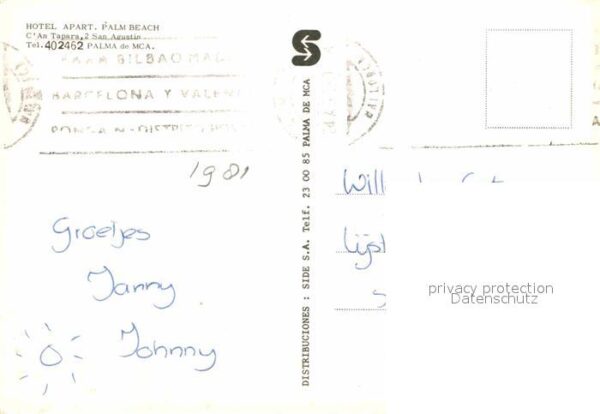 HOTEL APART. PALM BEACH
C'An Tapara, 2 San Agustin
Tel. 402462 PALMA de MCA.
BILBAO MA
BARCELONA Y VALEN
PONGA Nº DISTRITO POS
1981
Groetjes
Janny
Johnny
DISTRIBUCIONES : SIDE S.A. Telf. 23 00 85 PALMA DE MCA
S
Will
Lijst
privacy protection
Datenschutz